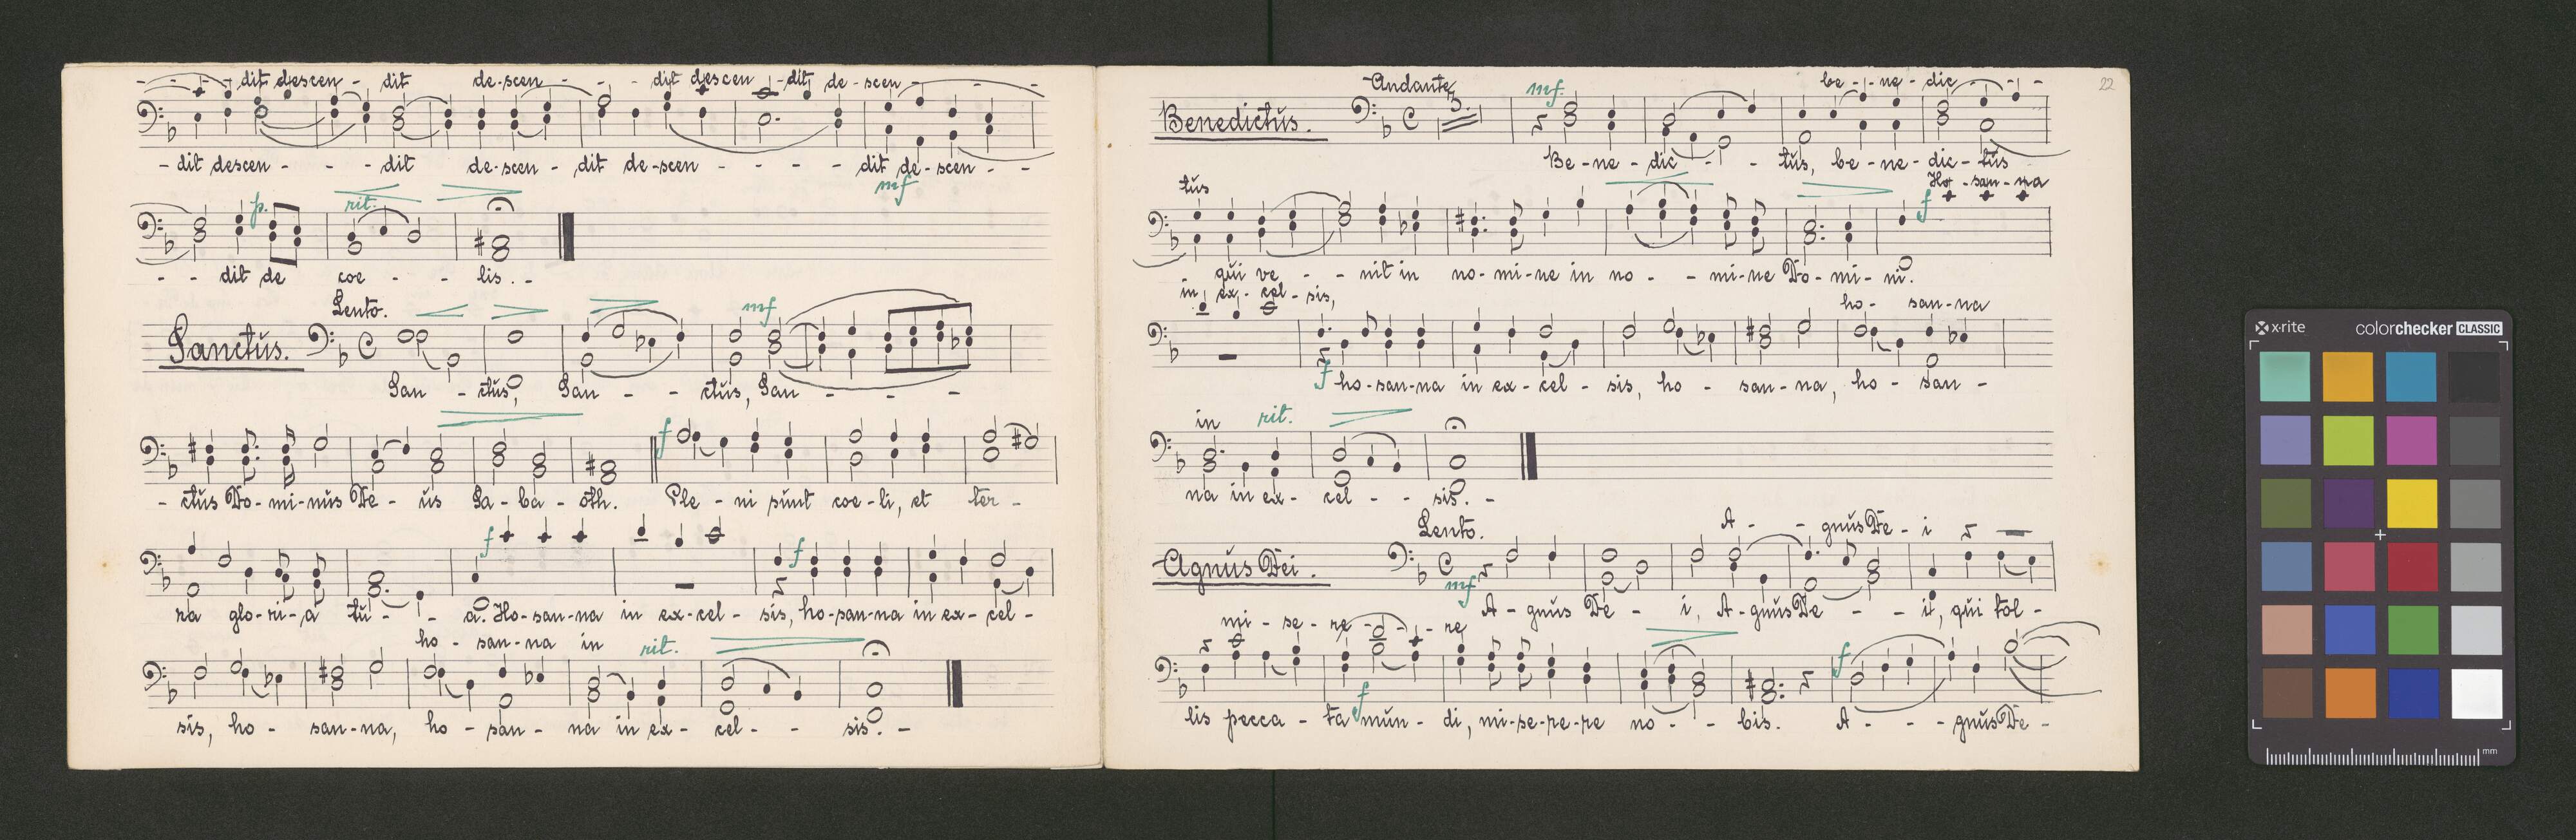 - - - dit descen - dit de-scen - - - dit descen - dit de-scen - -
- dit descen - - - dit de-scen - dit de-scen - - - - dit de-scen - -
mf
p. rit.
- - dit de coe - - lis. -
Lento.
mf
Sanctus.
San - ctus, San - - ctus, San - - -
f
- ctus Do-mi-nus De- us Sa-ba-oth. Ple - ni sunt coe-li, et ter-
f f
ra glo-ri-a tu - - a. Ho-san-na in ex-cel - sis, ho-san-na in ex-cel-
ho - san-na in rit.
sis, ho - san-na, ho - san - na in ex- cel - - sis. -
22
Andante. mf. be - ne - dic - - -
3.
Benedictus.
Be - ne - dic - - tus, be - ne - dic - tus
tus Ho - san - na
f
- qui ve - - nit in no-mi-ne in no - - mi-ne Do-mi-ni.
in ex - cel - sis, ho- san-na
f ho-san-na in ex-cel - sis, ho - san-na, ho- san -
in rit.
na in ex- cel - - sis. -
Lento. A - - gnus De - i
Agnus Dei.
mf A - gnus De - i, A-gnus De - - i, qui tol -
mi - se - re - - re
f
f
lis pecca - ta mun - di, mi-se-re-re no - - bis. A - - - gnus De -
x-rite colorchecker CLASSIC
mm